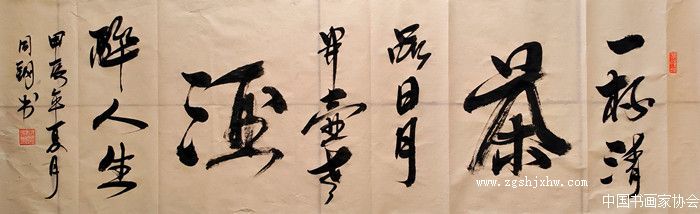 一杯清
茶
品日月
半壶老
酒
醉人生
甲辰年夏月
同书
www.zgshjxhw.com
中国书画家协会